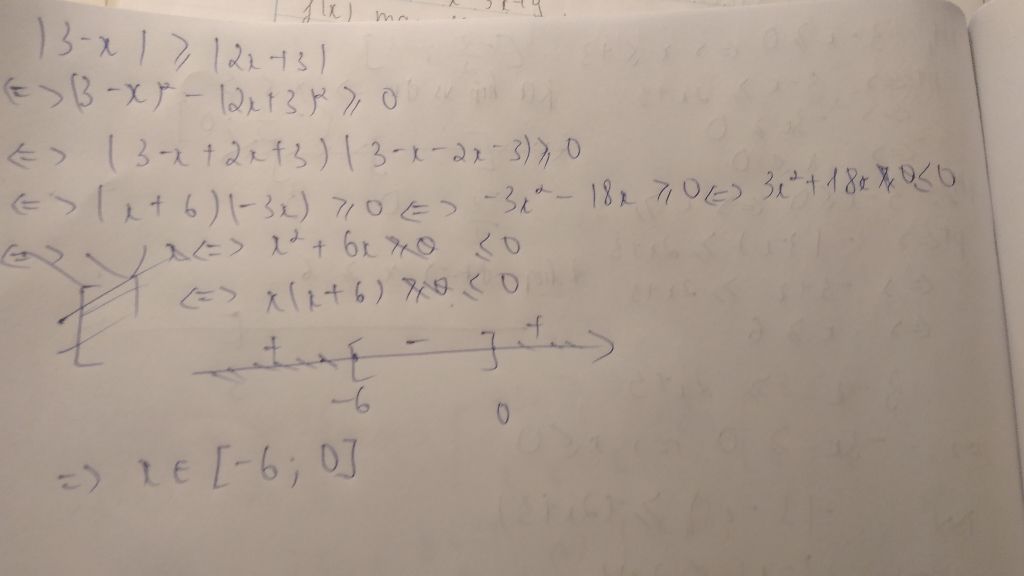 |3-x| ⩾ |2x+3|
<=> (3-x)² - (2x+3)² ⩾ 0
<=> (3-x+2x+3)(3-x-2x-3) ⩾ 0
<=> (x+6)(-3x) ⩾ 0 <=> -3x² - 18x ⩾ 0 <=> 3x² + 18x ≤ 0
<=> x² + 6x ≤ 0
<=> x(x+6) ≤ 0
+ [ - ] +
-6 0
=> x ∈ [-6; 0]